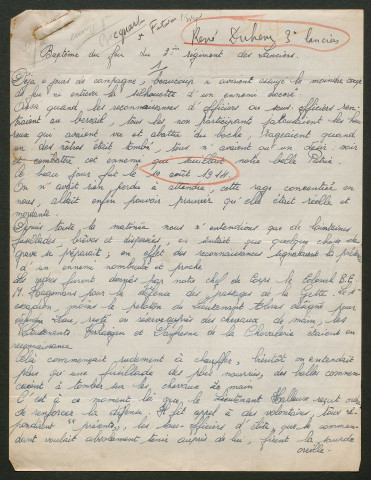 René Duhem 3e lanciers
Baptême du feu du 3me régiment des lanciers.
1
Déjà 6 jours de campagne, beaucoup n'avaient essuyé le moindre coup
de feu ni entrevu la silhouette d'un ennemi
Alors quand les reconnaissances d'officiers ou sous-officiers ren-
traient au bercail, tous les non participant jalousaient les heu-
reux qui avaient vu et abattu du boche; rageaient quand
un des nôtres était tombé, tous n'avaient qu'un désir voir
et combattre cet ennemi que souillait notre belle Patrie.
Ce beau jour fut le 10 août 1914.
On n'avait rien perdu à attendre, cette rage concentrée en
nous, allait enfin pouvoir prouver qu'elle était réelle et
montante.
Depuis toute la matinée nous n'entendions que de lointaines
fusillades, brèves et dispersées, on sentait que quelque chose de
grave se préparait; en effet des reconnaissances signalaient la présence
d'un ennemi nombreux et proche
Les ordres furent donnés par notre chef de corps le Colonel B.E.M.
Hagemans pour la défense des passages de la Gette. Le 1er
escadron, moins le peloton du Lieutenant désigné pour
défendre Léau, resta en réserve auprès des chevaux de main, les
Lieutenants et de la Chevalerie étaient en
reconnaissance.
Cela commençait rudement à chauffer, bientôt on entendait
plus qu'une fusillade des plus nourries, des balles commen-
çaient à tomber sur les chevaux de main.
C'est à ce moment là que le Lieutenant reçut ordre
de renforcer la défense. Il fit appel à des volontaires, tous ré-
pondirent "présents", les sous-officiers d'élite que le comman-
dant voulait absolument tenir auprès de lui, firent la sourde
oreille.